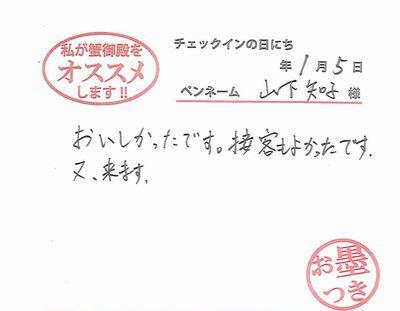 私が蟹御殿を
オススメ
します!!
チェックインの日にち
年1月5日
ペンネーム 山下知子 様
おいしかったです。接客もよかったです.
又、来ます.
お墨
つき